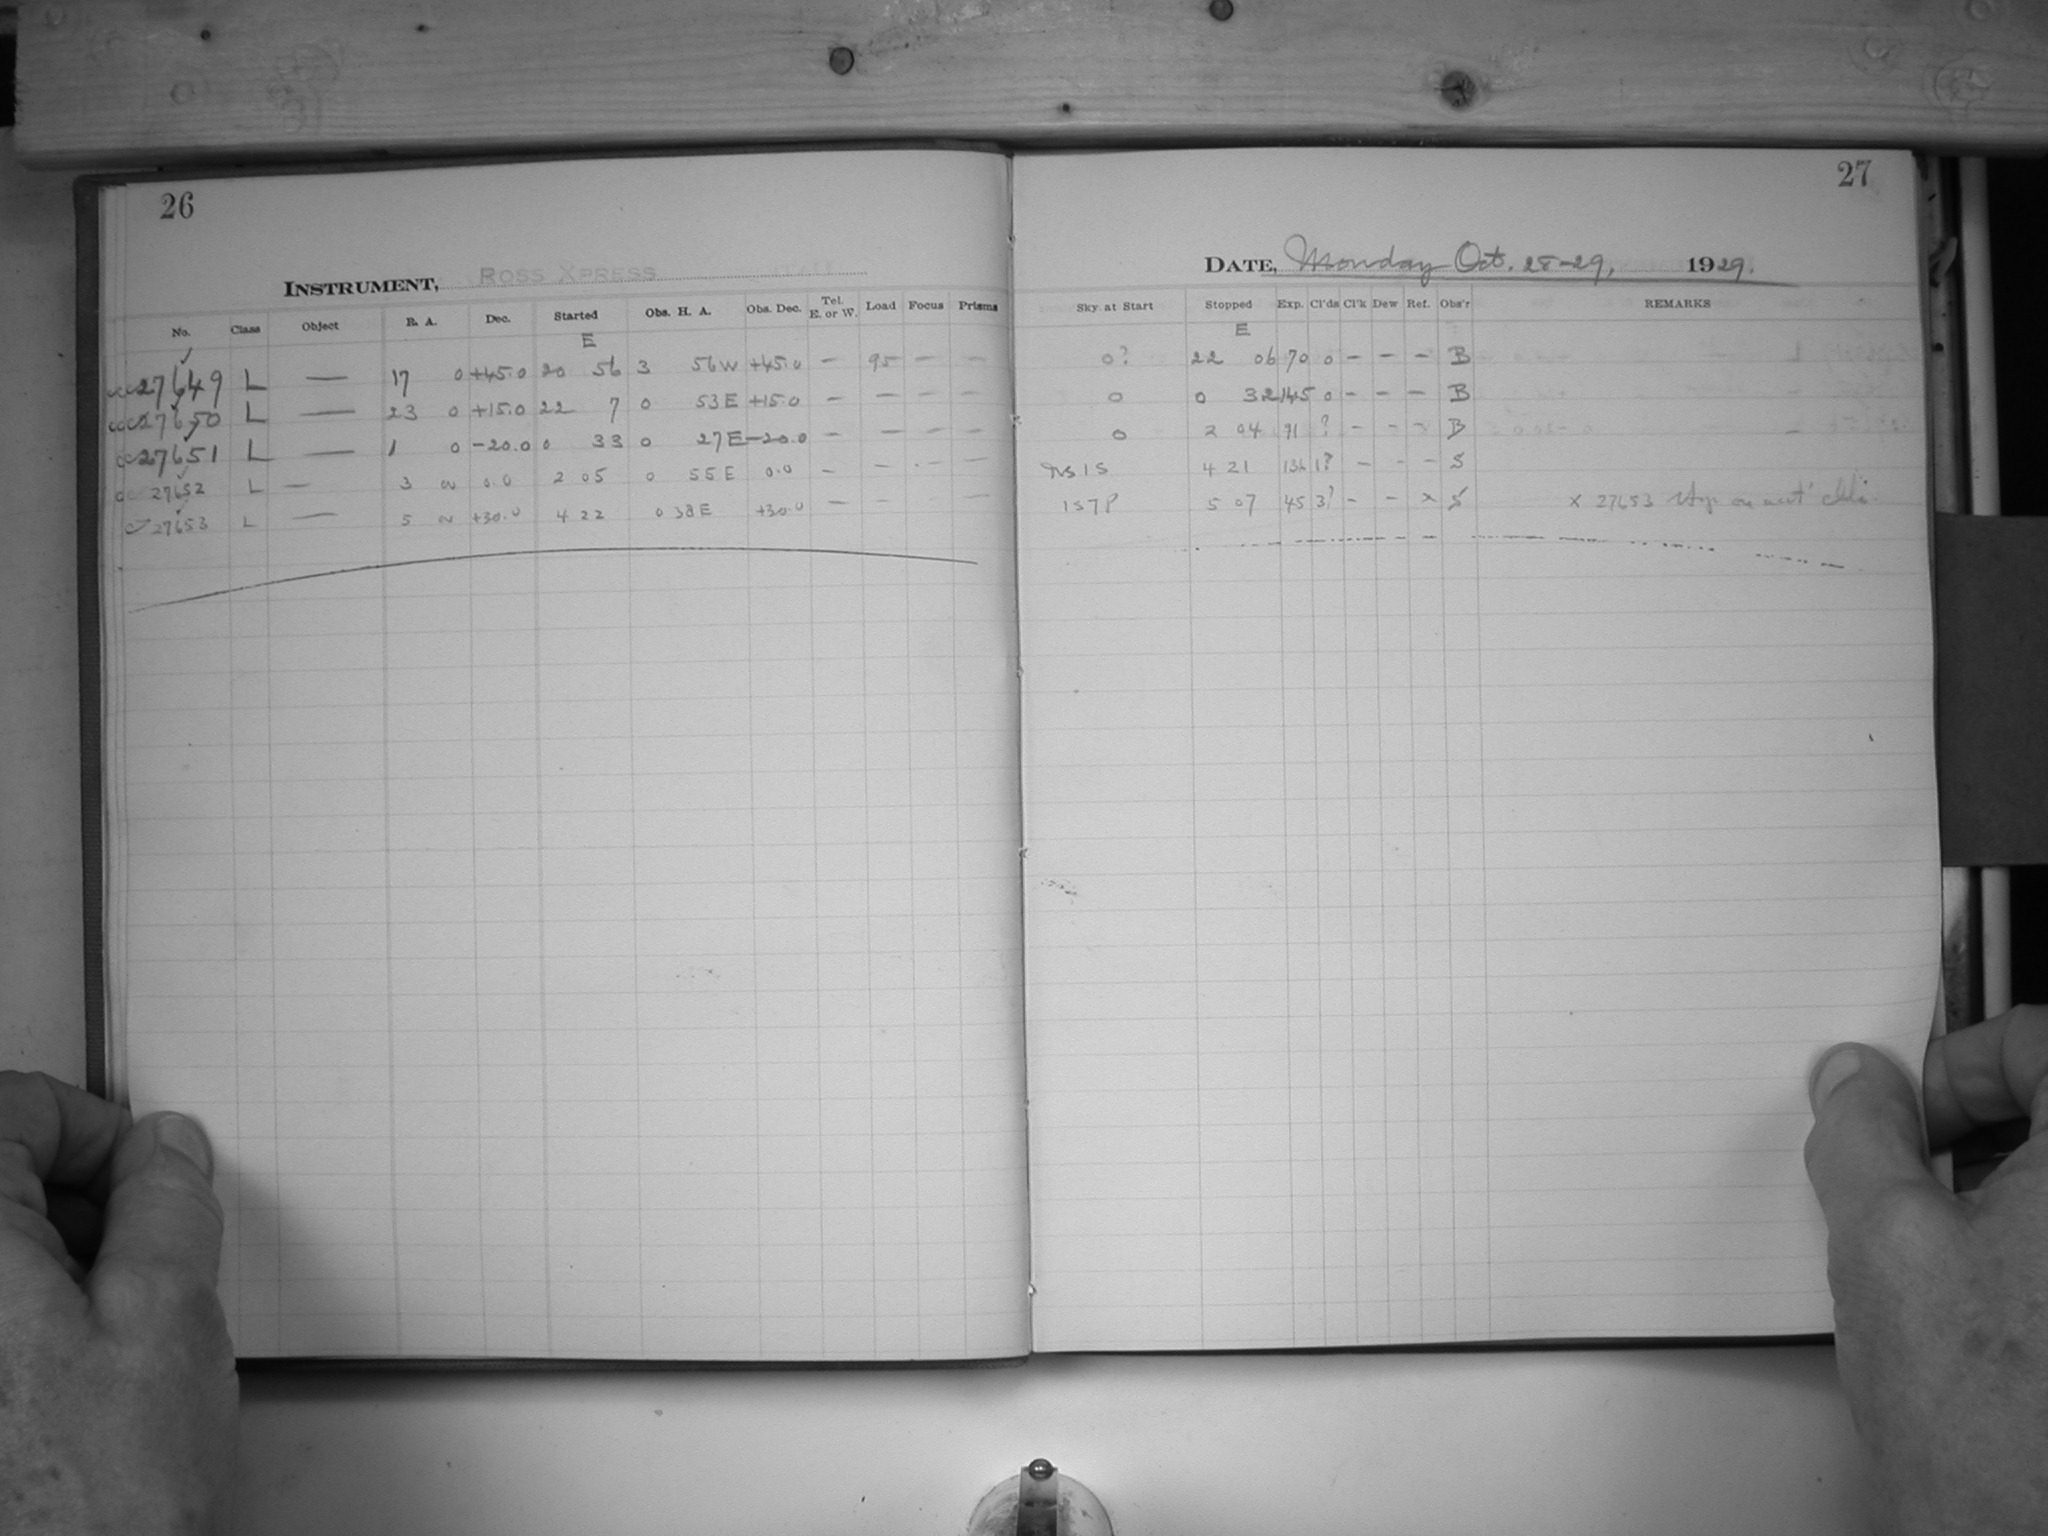 26
INSTRUMENT, ROSS XPRESS
No. Class Object R. A. Dec. Started Obs. H. A. Obs. Dec. Tel. E. or W. Load Focus Prisms
E
27649 L — 17 0 +45.0 20 56 3 56W +45.0 — 95 — —
27650 L — 23 0 +15.0 22 7 0 53E +15.0 — — — —
27651 L — 1 0 -20.0 0 33 0 27E -20.0 — — — —
27652 L — 3 0.0 2 05 0 55E 0.0 — — — —
27653 L — 5 +30.0 4 22 0 38E +30.0 — — — —
27
DATE, Monday Oct. 28-29, 1929.
Sky at Start Stopped Exp. Cl'ds Cl'k Dew Ref. Obs'r REMARKS
E
0? 22 06 70 0 — — — B
0 0 32 145 0 — — — B
0 2 04 91 ? — — B
4 21 136 1? — — — S
1S7P 5 07 45 3? — — x S x 27653 on